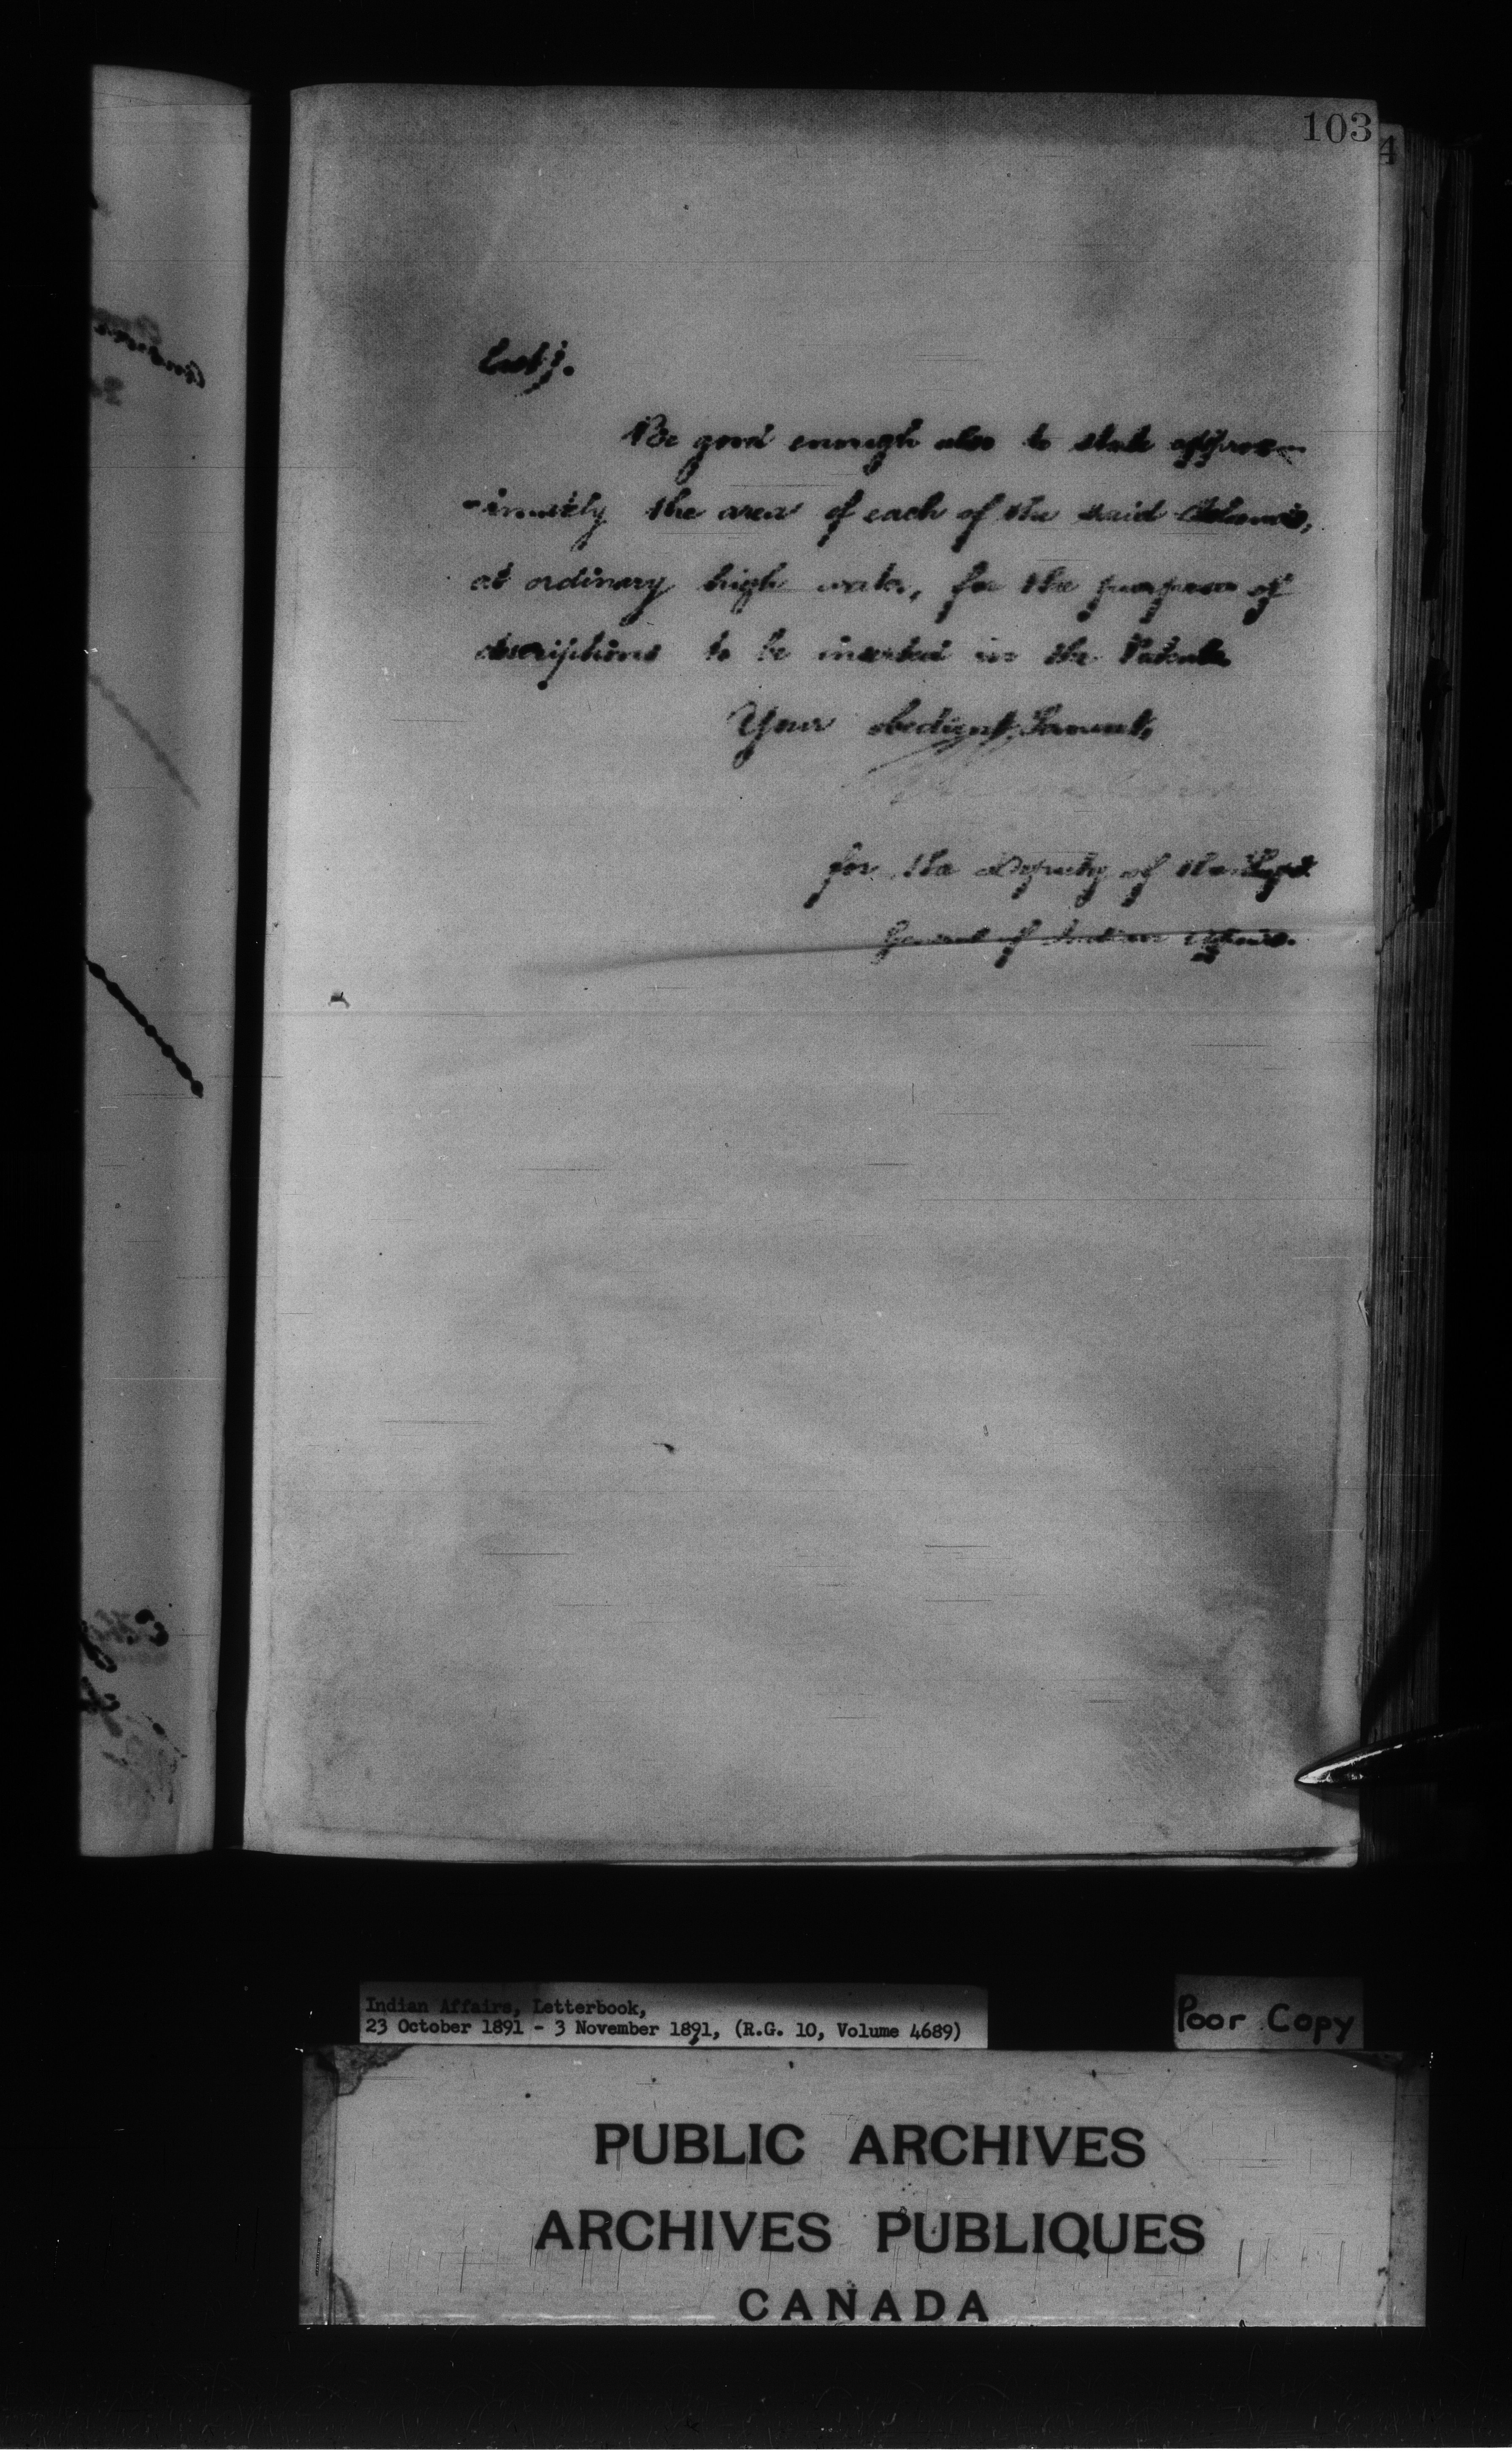 103
4
Be good enough also to state approx-
-imately the area of each of the said Islands,
at ordinary high water, for the purposes of
descriptions to be inserted in the Patents
Your obedient Servant,
for the Deputy of the Supt.
General of Indian Affairs.
Indian Affairs, Letterbook,
23 October 1891 - 3 November 1891, (R.G. 10, Volume 4689)
Poor Copy
PUBLIC ARCHIVES
ARCHIVES PUBLIQUES
CANADA